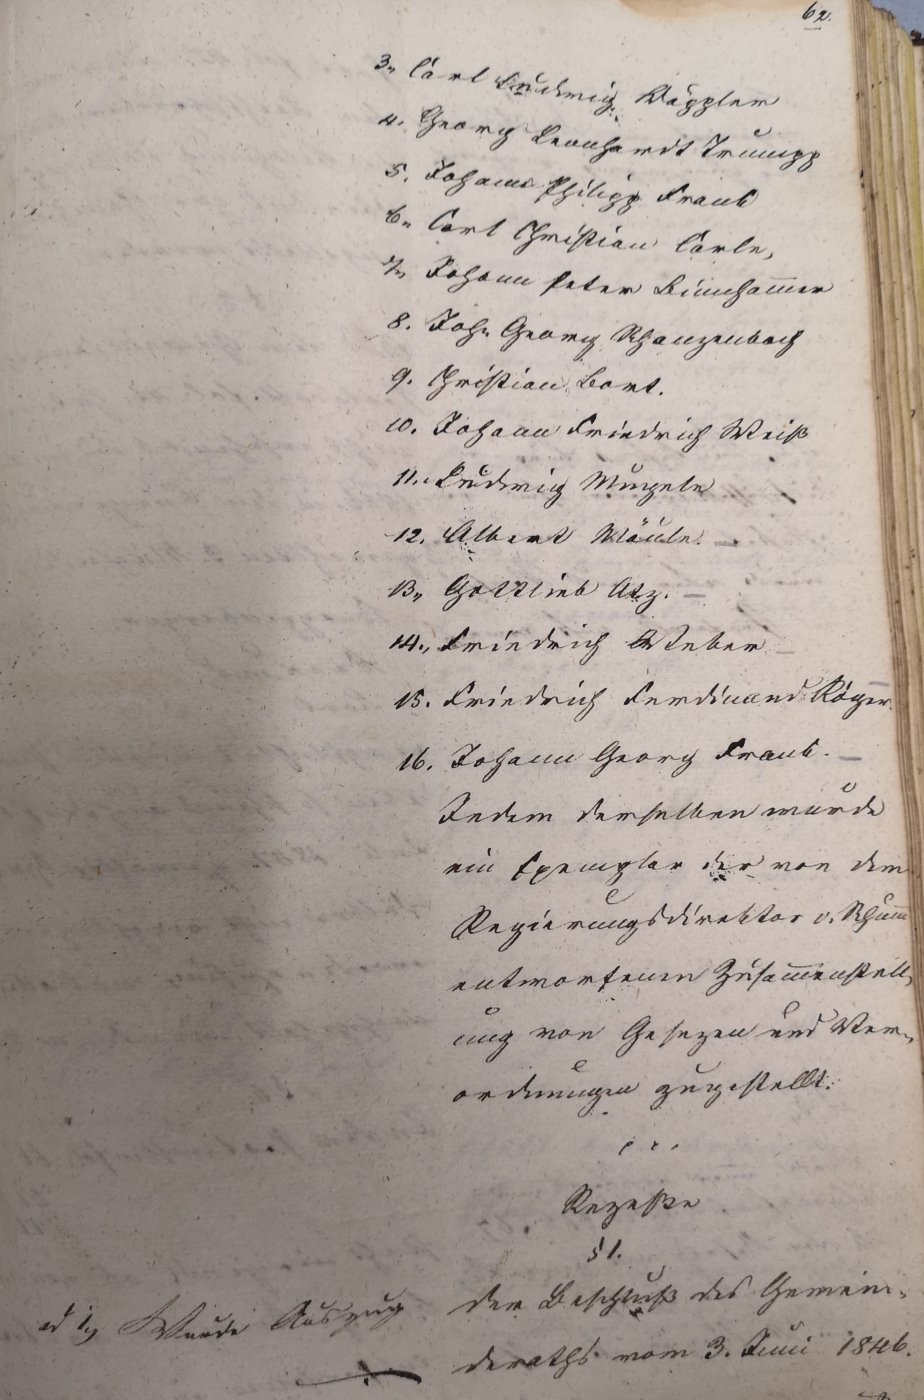 62.
3., Carl Ludwig Däppler
4. Georg Leonhardt Trumpp
5. Johann Philipp Frank
6., Carl Christian Carle,
7., Johann Peter Binnham̅er
8. Joh. Georg Schanzenbach
9. Christian Bort.
10. Johann Friedrich Weiß
11. Ludwig Mugele
12. Albert Mäule. —
13., Gottlieb Atz. —
14., Friedrich Weber —
15. Friedrich Ferdinand Röger.
16. Johann Georg Frank. —
Jedem derselben wurde
ein Exemplar der von dem
Regierungsdirektor v. Schum̅
entworfenen Zusam̅enstell-
ung von Gesezen und Ver-
ordnungen zugestellt.
. . .
Rezesse
§ 1.
ad 1., Wurde Auszug
der Beschluß des Gemein-
deraths vom 3. Juni 1846.